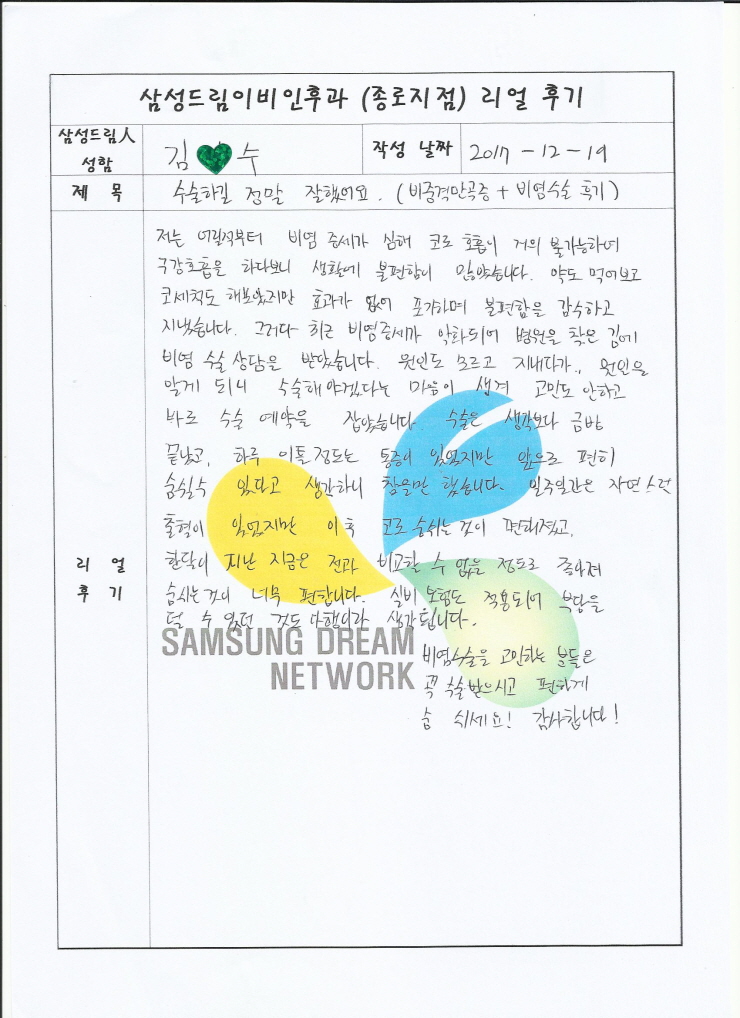 삼성드림이비인후과 (종로지점) 리얼 후기
삼성드림人
성함
김 수
작성 날짜
2017-12-19
제 목
수술하길 정말 잘했어요. (비중격만곡증 + 비염수술 후기)
저는 어릴적부터 비염 증세가 심해 코로 호흡이 거의 불가능하여
구강호흡을 하다보니 생활에 불편함이 많았습니다. 약도 먹어보고
코세척도 해보았지만 효과가 없어 포기하며 불편함을 감수하고
지냈습니다. 그러다 최근 비염증세가 악화되어 병원을 찾은 김에
비염 수술 상담을 받았습니다. 원인도 모르고 지내다가., 원인을
알게 되니 수술해야겠다는 마음이 생겨 고민도 안하고
바로 수술 예약을 잡았습니다. 수술은 생각보다 금방
끝났고, 하루 이틀정도는 통증이 있었지만 앞으로 편히
숨쉴수 있다고 생각하니 참을만 했습니다. 일주일간은 자연스런
출혈이 있었지만 이후 코로 숨쉬는 것이 편해졌고,
리 얼
후 기
한달이 지난 지금은 전과 비교할 수 없을 정도로 좋아져
숨쉬는것이 너무 편합니다. 실비 보험도 적용되어 부담을
덜 수 있던 것도 다행이라 생각됩니다.
비염수술을 고민하는 분들은
꼭 수술받으시고 편하게
숨 쉬세요! 감사합니다!
SAMSUNG DREAM
NETWORK